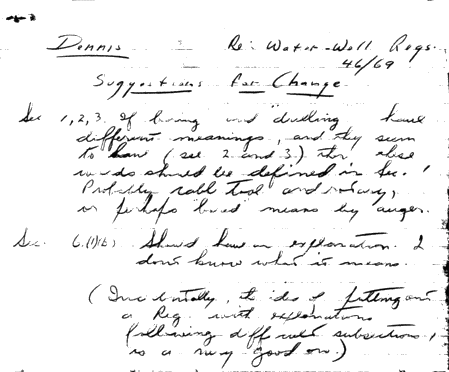 Dennis Re: Water-Well Regs.
46/69
Suggestions for Change
Sec 1,2,3. If boring and "drilling" have
different meanings, and they seem
to have (see 2 and 3) then these
words should be defined in Sec. 1
Probably cable tool and rotary,
or perhaps "bored" means by auger.
Sec. 6.(1)(b) Should have an explanation. I
don't know what it means.
(Incidentally, the idea of fitting out
a Reg. with explanations
following different subsections,
is a very good one.)